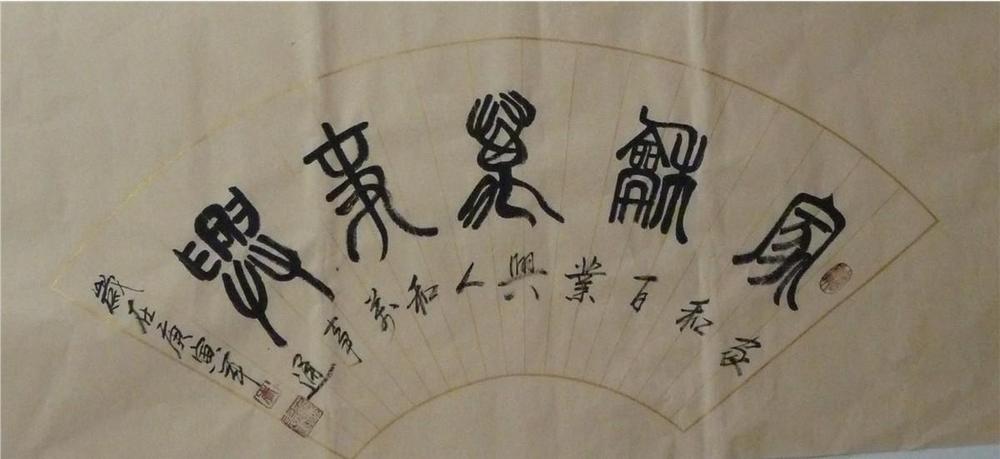 家龢萬事興
家和百業興人和萬事通
歲在庚寅年